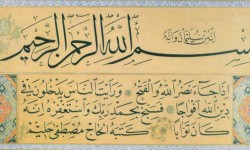 إنه من سليمان وإنه
بسم الله الرحمن الرحيم
اذا جاء نصر الله والفتح ورأيت الناس يدخلون في
دين الله أفواجا فسبح بحمد ربك واستغفره إنه
كان توابا كتبه الحاج مصطفى حليم